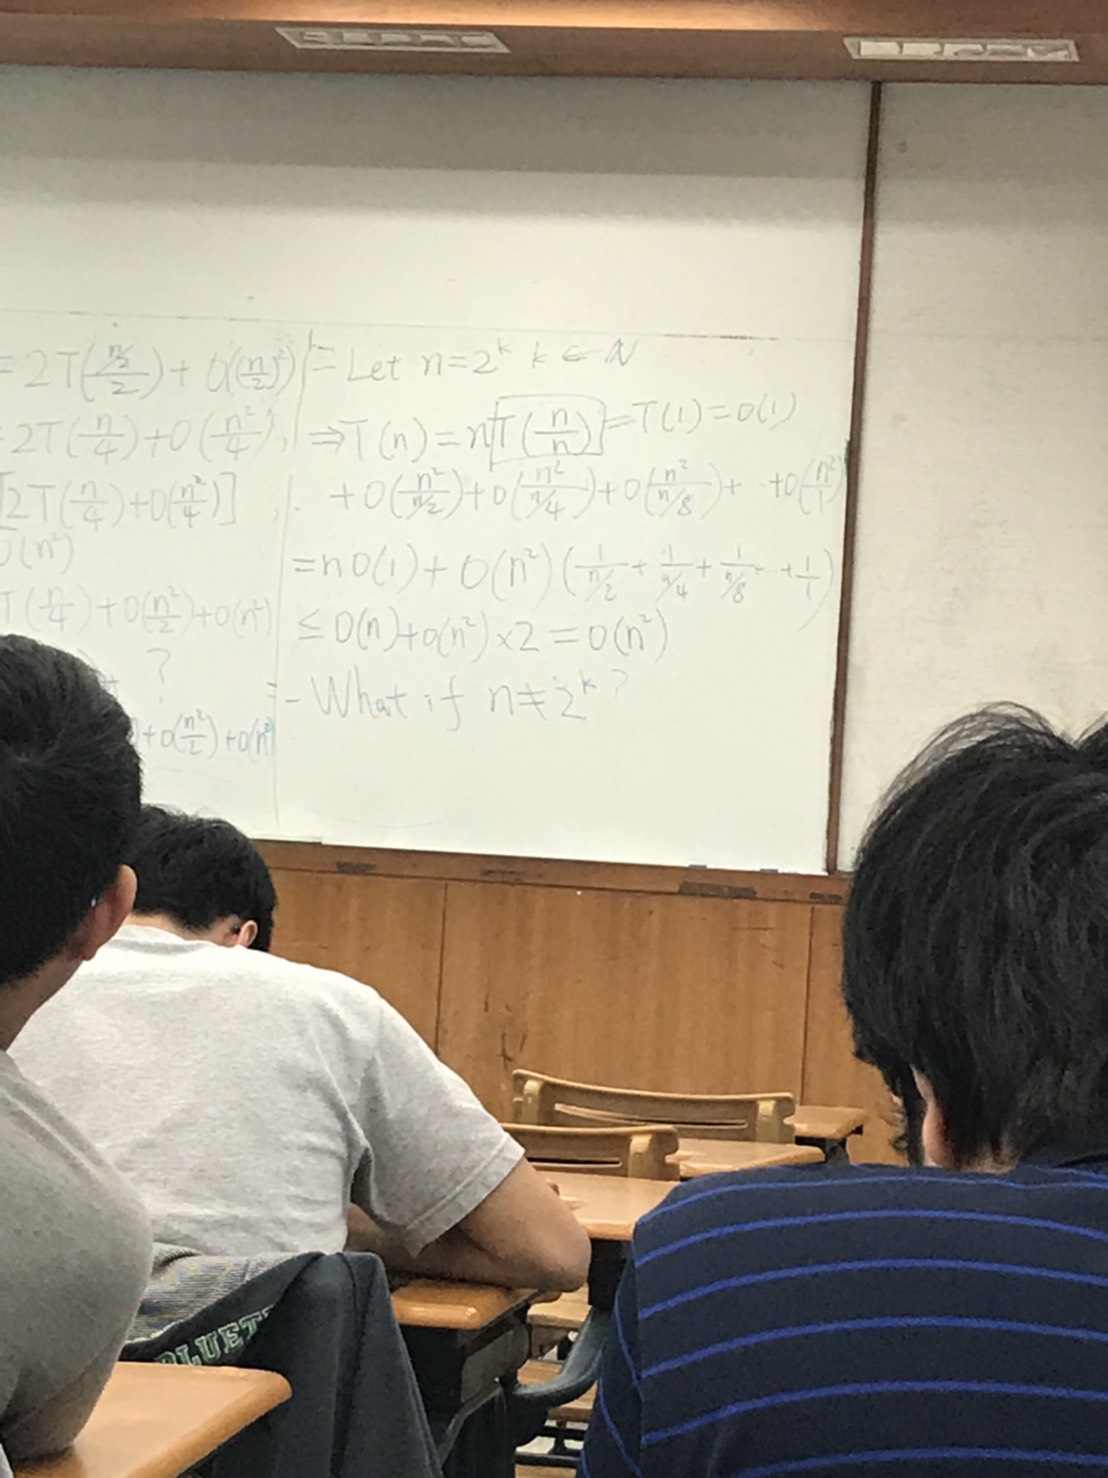 = 2T(\frac{n/2}{2}) + O((\frac{n}{2})^2)
= 2T(\frac{n}{4}) + O(\frac{n^2}{4})
[2T(\frac{n}{4}) + O(\frac{n^2}{4})]
O(n^2)
T(\frac{n}{4}) + O(\frac{n^2}{2}) + O(n^2)
?
+ O(\frac{n^2}{2}) + O(n^2)
- Let n = 2^k k ∈ N
⇒ T(n) = n T(\frac{n}{n}) = T(1) = O(1)
+ O(\frac{n^2}{n/2}) + O(\frac{n^2}{n/4}) + O(\frac{n^2}{n/8}) + ... + O(\frac{n^2}{1})
= n O(1) + O(n^2) (\frac{1}{n/2} + \frac{1}{n/4} + \frac{1}{n/8} ... + \frac{1}{1})
≤ O(n) + O(n^2) × 2 = O(n^2)
- What if n ≠ 2^k ?
BLUET